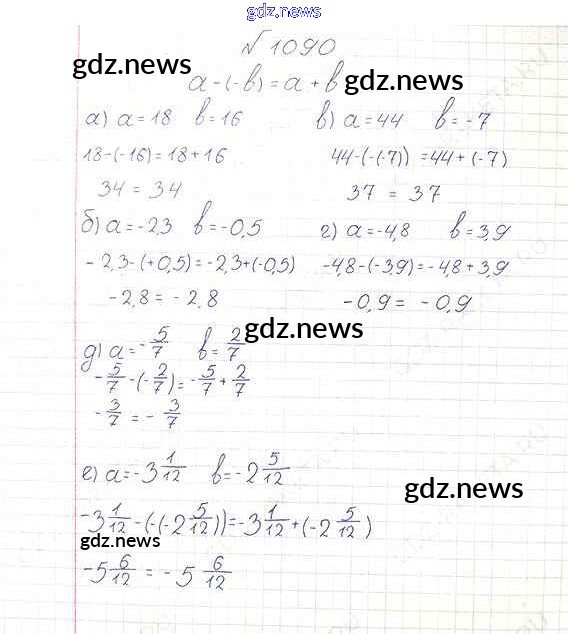 gdz.news
№ 1090
gdz.news
a - (-b) = a + b gdz.news
а) a = 18 b = 16
18 - (-16) = 18 + 16
34 = 34
в) a = 44 b = -7
44 - (-(-7)) = 44 + (-7)
37 = 37
б) a = -2,3 b = -0,5
- 2,3 - (+0,5) = -2,3 + (-0,5)
-2,8 = -2,8
г) a = -4,8 b = 3,9
-4,8 - (-3,9) = -4,8 + 3,9
-0,9 = -0,9
gdz.news
д) a = -5/7 b = 2/7
-5/7 - (-2/7) = -5/7 + 2/7
-3/7 = -3/7
е) a = -3 1/12 b = -2 5/12
gdz.news
-3 1/12 - (-(-2 5/12)) = -3 1/12 + (-2 5/12)
gdz.news
-5 6/12 = -5 6/12